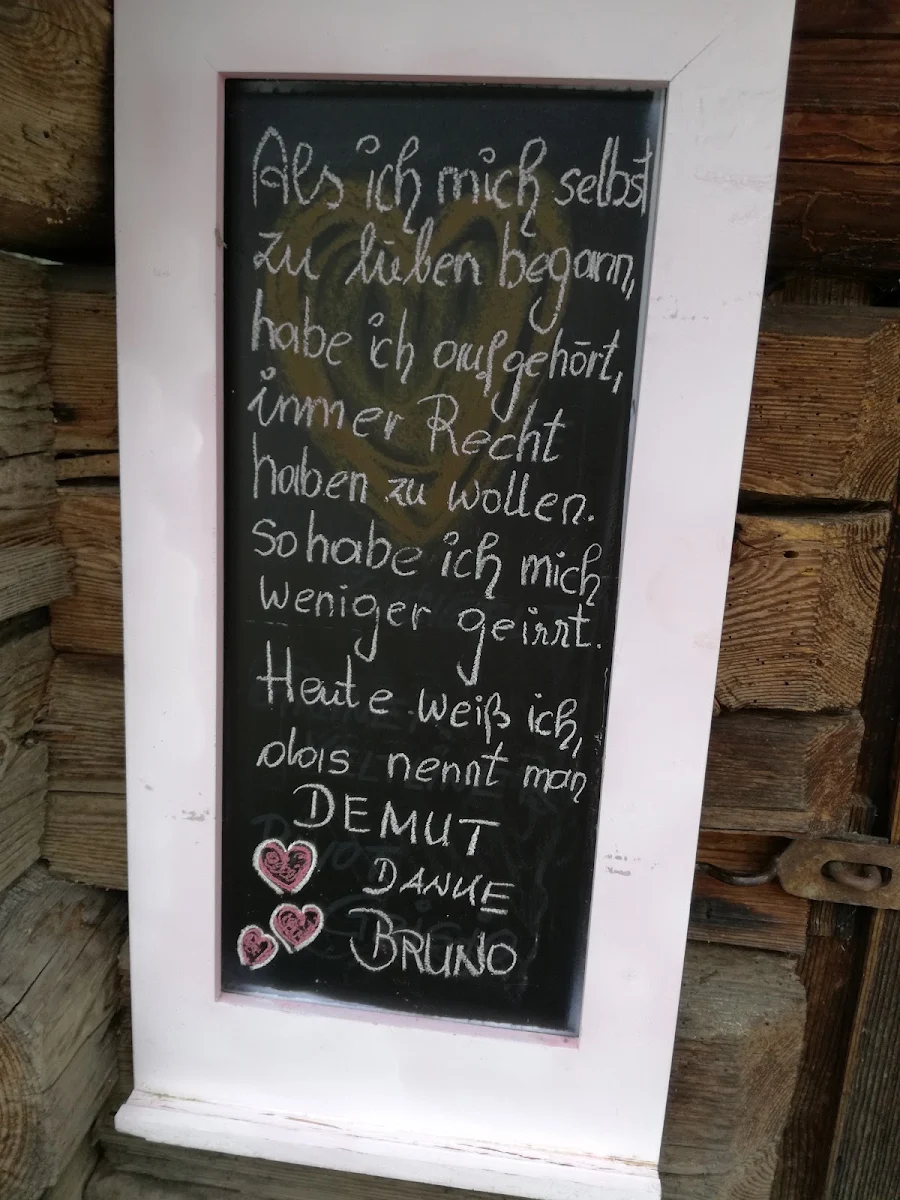 Als ich mich selbst
zu lieben begann,
habe ich aufgehört,
immer Recht
haben zu wollen.
So habe ich mich
weniger geirrt.
Heute weiß ich,
das nennt man
DEMUT
DANKE
BRUNO